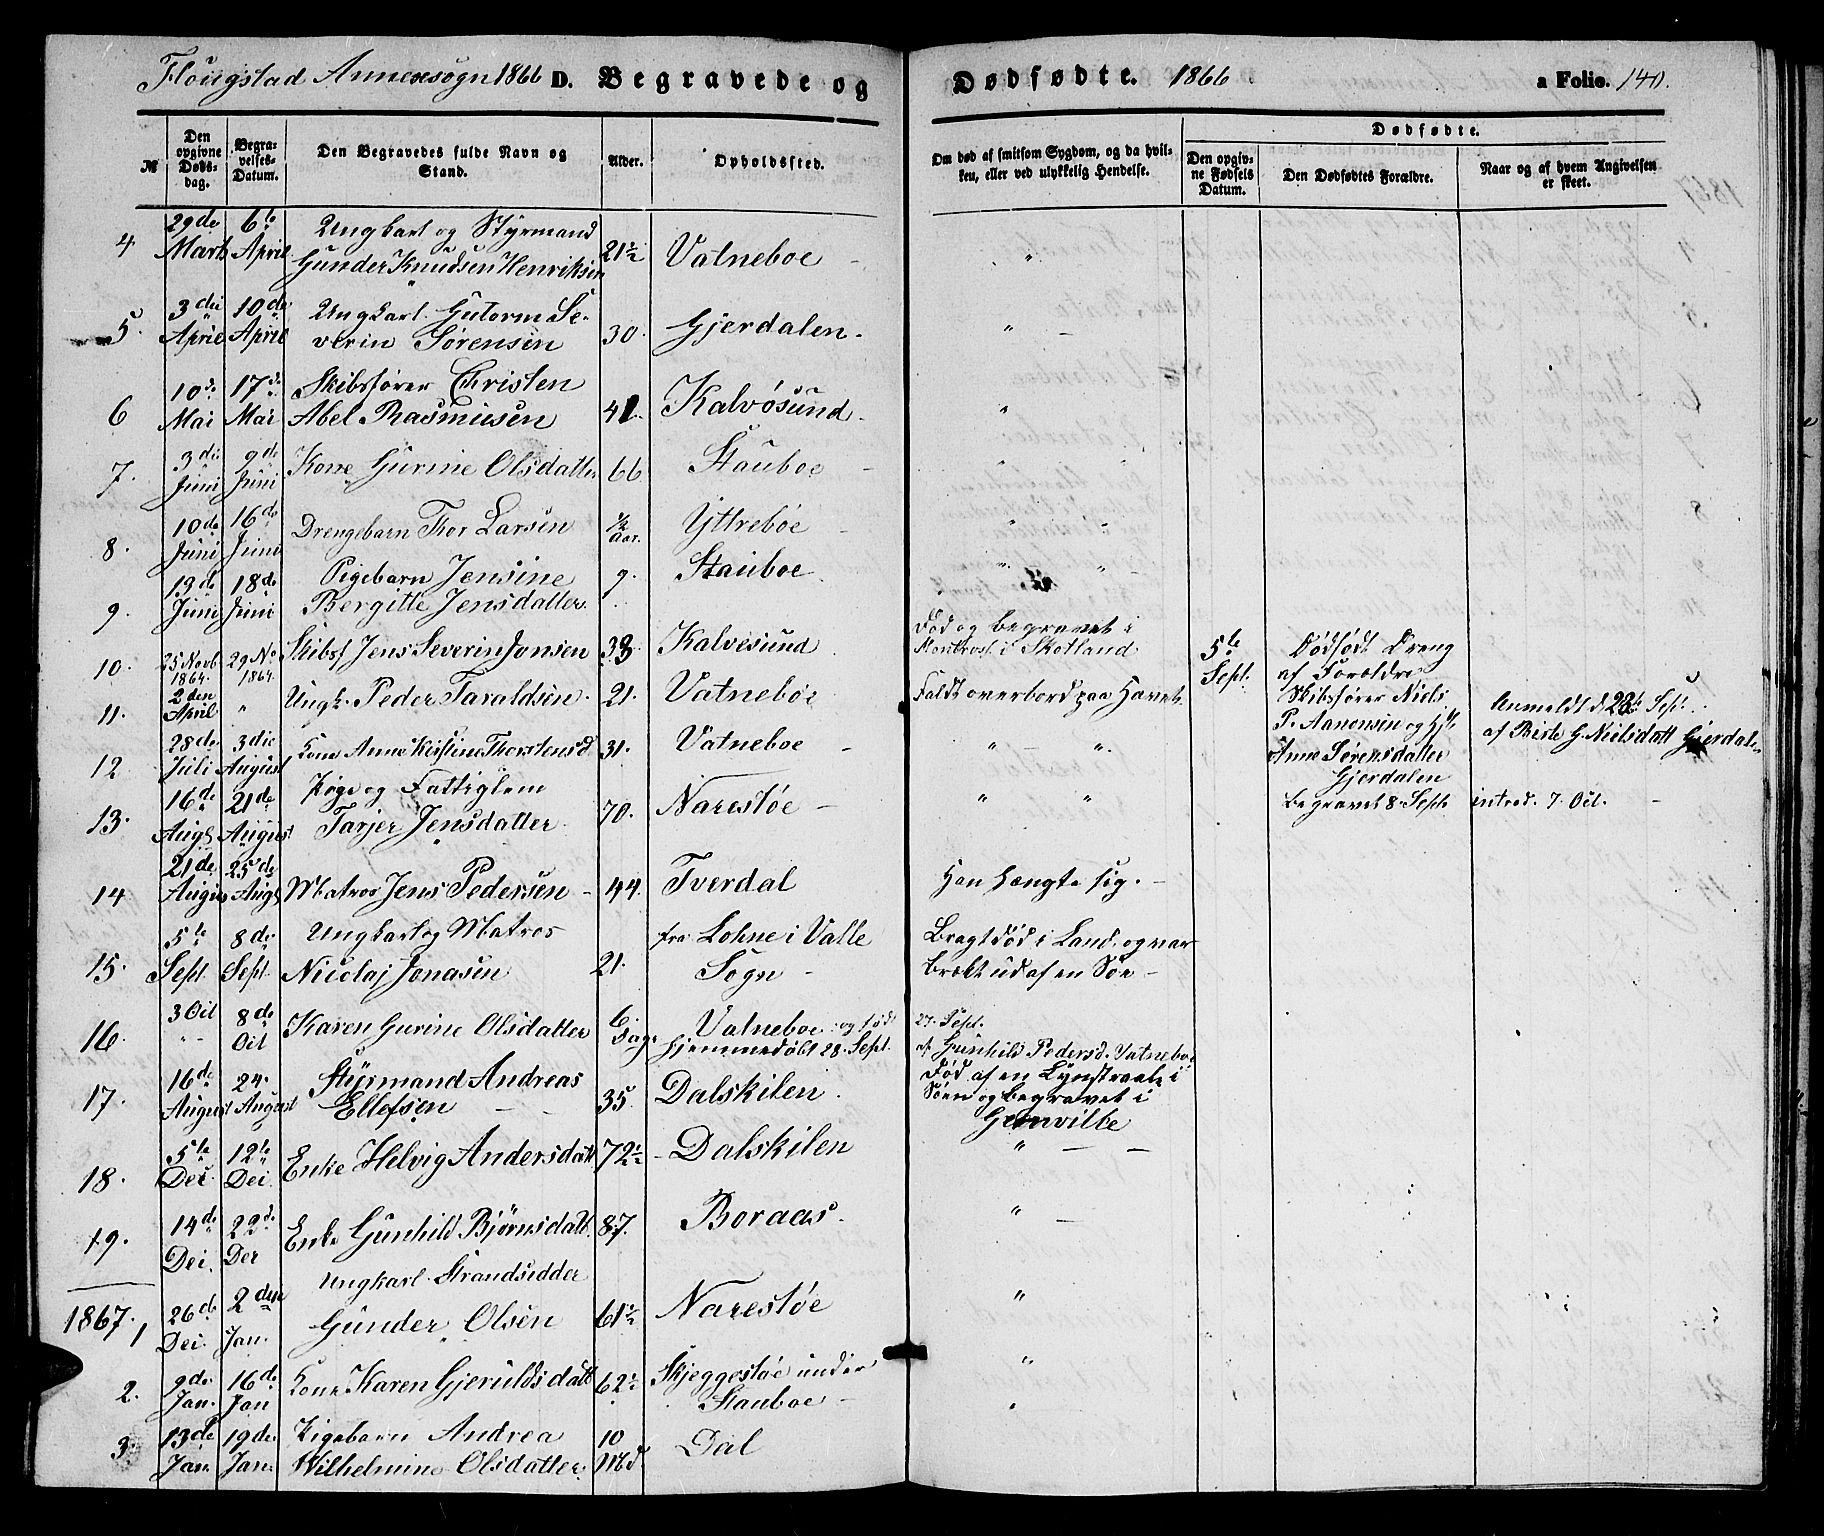 Flougstad Annexsogn 1866 D. Begravede og Dødfødte. 1866 a Folio. 140.
№
Den opgivne Dødsdag.
Begravelses-Datum.
Den Begravedes fulde Navn og Stand.
Alder.
Opholdssted.
Om død af smitsom Sygdom, og da hvilken, eller ved ulykkelig Hendelse.
Dødfødte.
Den opgivne Fødsels Datum.
Den Dødfødtes Forældre.
Naar og af hvem Angivelsen er skeet.
4 29de Marts 6te April Ungkarl og Styrmand
Gunder Knudsen Henriksen 21½ Vatneboe "
5. 3die April 10de April Ungkarl Gutorm Se-
verin Sørensen 30. Gjerdalen "
6 10de Mai 17de Mai Skibsfører Christen
Abel Rasmusen 41. Kalvøsund "
7. 3die Juni 9de Juni Kone Gurine Olsdatter 66 Stauboe " "
8. 10de Juni 16de Juni Drengebarn Thor Larsen ½ Aar. Yttrebøe " "
9. 13de Juni 18de Juni Pigebarn Jensine
Bergitte Jensdatter. 9. Stauboe
10. 25 Novb 1864. 29 No 1864. Skibsf Jens Severin Jonsen 33 Kalvesund Død og begravet i
Montrost i Skotland
11. 2den April " Ungk. Peder Taraldsen. 21. Vatnebøe Faldt overbord paa Havet.
12 28de Juli 3die August Kone Anne Kirstine Thorstensd. 31. Vatneboe " "
13. 16de Augs 21de August Pige og Fattiglem
Tarjer Jensdatter 70. Narestøe " "
5te Sept. Dødfødt Dreng
af Forældre
Skibsfører Niels
P. Aanonsen og H/
Anne Sørensdatter
Gjerdalen
begravet 8. Sept.
Anmeldt d 28de Sept.
af Birte G. Nielsdatt Gjerdalen
introd. 7. Oct.
14 21de August 25de Augs Matros Jens Pedersen 44. Tverdal Han hængte sig.
15. 5te Sept. 8de Sept. Ungkarl og Matros
Nicolaj Jonasen 21. fra Lohne i Valle
Sogn Bragt død i Land, og var
trækt ud af en Søe
16. 3 Oct 8de Oct Karen Gurine Olsdatter 6. Dage Vatneboe og født 27. Sept.
hjemmedøbt 28. Sept. af Gunhild Pedersd. Vatneboe
17. 16de August 24. August Styrmand Andreas
Ellefsen 35. Dalskilen. Død af en Lynstraale i
Søen og begravet i
Grenville
18. 5te Dec. 12te Dec. Enke Helvig Andersdatt 72½ Dalskilen "
19. 14de Dec. 22de Dec Enke Gunhild Bjørnsdatt. 87. Boraas. "
1867. 1 26de Dec. 2den Jan. Ungkarl Strandsidder
Gunder Olsen 61½ Narestøe "
2. 9de Jan. 16de Jan Kone Karen Gjeruldsdatt 62½ Skjeggestøe under
Stauboe "
3. 13de Jan. 19de Jan. Pigebarn Andrea
Wilhelmine Olsdatter. 10 Md. Dal